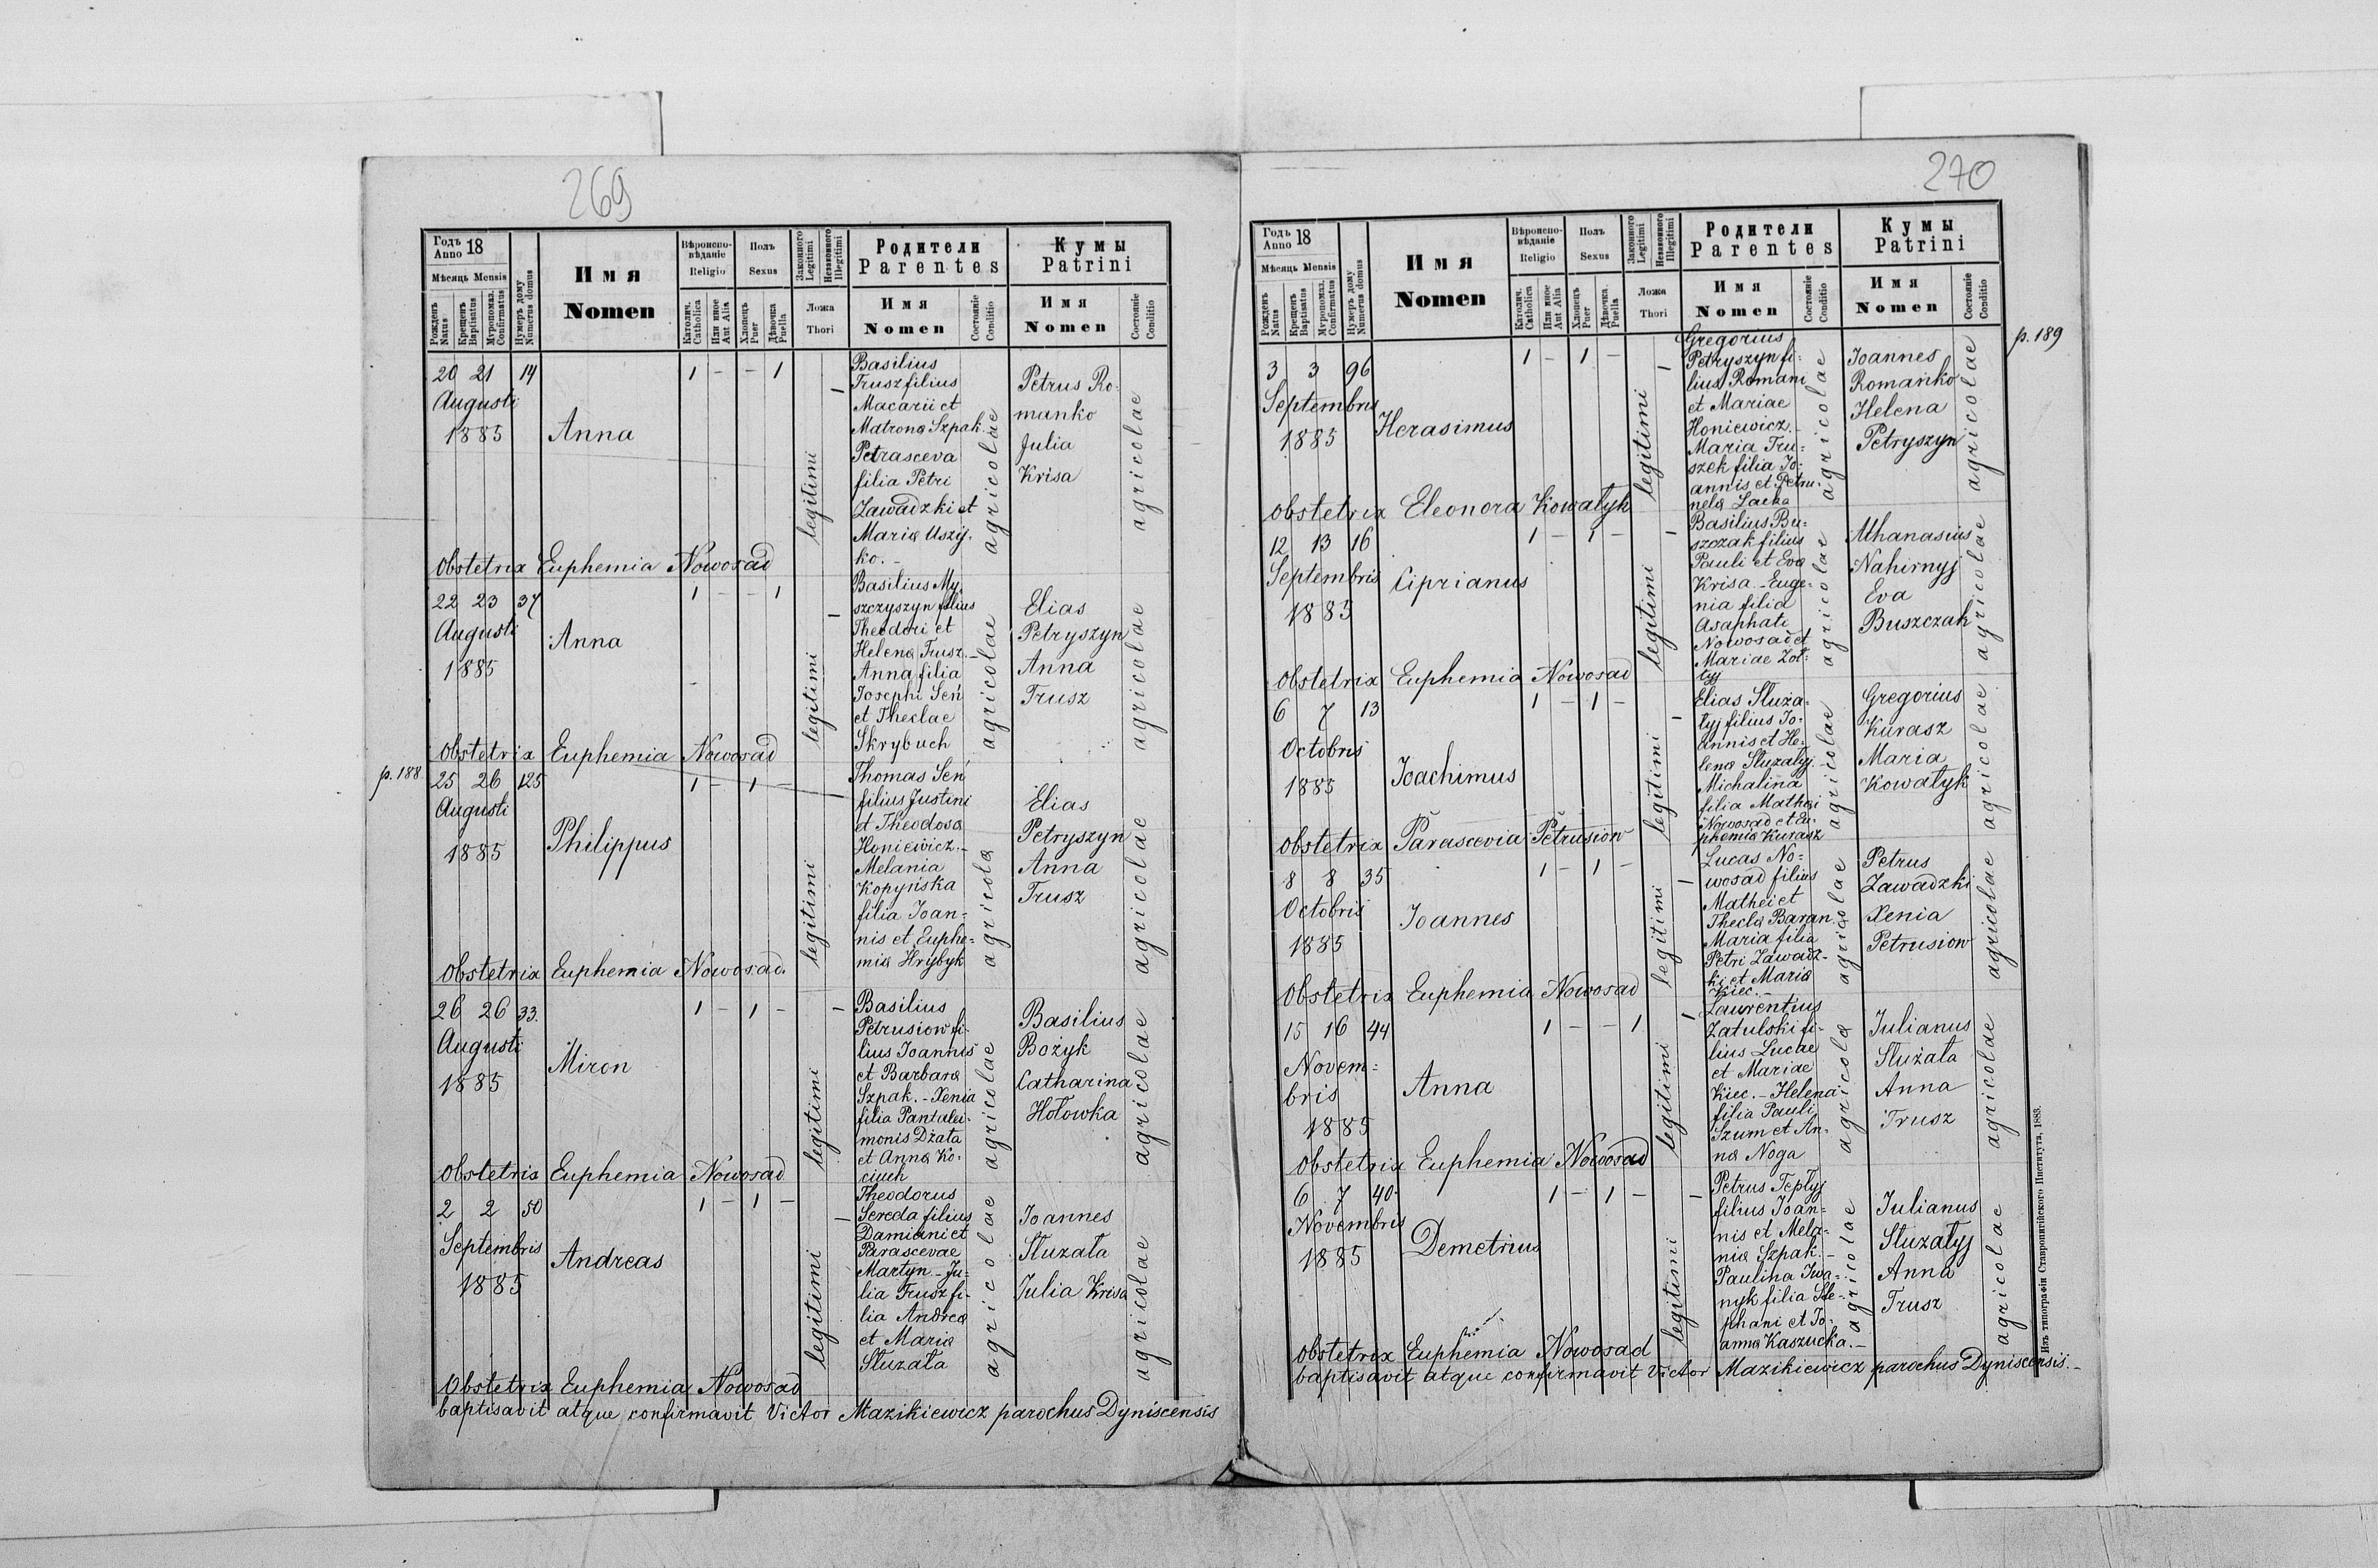 269
Годъ 18
Anno
Мѣсяць Mensis
Рожденъ Natus
Крещенъ Baptisatus
Муропомаз. Confirmatus
Нумеръ дому Numerus domus
Имя
Nomen
Вѣроиспо-
вѣданіе
Religio
Католич. Catholica
Или иное Aut Alia
Полъ
Sexus
Хлопецъ Puer
Дѣвочка Puella
Законного Legitimi
Незаконного Illegitimi
Ложа
Thori
Родители
Parentes
Имя
Nomen
Состояніе Conditio
Кумы
Patrini
Имя
Nomen
Состояніе Conditio
20 21 14
Augusti
1885
Anna
1 - - 1
legitimi
Basilius
Trusz filius
Macarii et
Matrona Szpak.
Petrasceva
filia Petri
Zawadzki et
Maria Uszy-
ko. -
agricolae
Petrus Ro-
manko
Julia
Krisa
agricolae
Obstetrix Euphemia Nowosad
22 23 37
Augusti
1885
Anna
1 - - 1
legitimi
Basilius My-
szczyszyn filius
Theodori et
Helena Trusz. -
Anna filia
Josephi Seń
et Theclae
Skrybuch
agricolae
Elias
Petryszyn
Anna
Trusz
agricolae
Obstetrix Euphemia Nowosad
p. 188.
25 26 125
Augusti
1885
Philippus
1 - 1 -
legitimi
Thomas Seń
filius Justini
et Theodosa
Honiewicz. -
Melania
Kopyńska
filia Joan-
nis et Euphe-
mia Hrybyk
agricola
Elias
Petryszyn
Anna
Trusz
agricolae
Obstetrix Euphemia Nowosad.
26 26 33.
Augusti
1885
Miron
1 - 1 -
legitimi
Basilius
Petrusiow fi-
lius Joannis
et Barbara
Szpak. - Xenia
filia Pantalei-
monis Dżała
et Anna Ko-
ciuch
agricolae
Basilius
Bożyk
Catharina
Hołowka
agricolae
Obstetrix Euphemia Nowosad
2 2 50
Septembris
1885
Andreas
1 - 1 -
legitimi
Theodorus
Sereda filius
Damiani et
Parascevae
Martyn - Ju-
lia Trusz fi-
lia Andrea
et Maria
Służała
agricolae
Joannes
Służała
Julia Krisa
agricolae
Obstetrix Euphemia Nowosad
baptisavit atque confirmavit Victor Mazikiewicz parochus Dyniscensis
270
Годъ 18
Anno
Мѣсяць Mensis
Рожденъ Natus
Крещенъ Baptisatus
Муропомаз. Confirmatus
Нумеръ дому Numerus domus
Имя
Nomen
Вѣроиспо-
вѣданіе
Religio
Католич. Catholica
Или иное Aut Alia
Полъ
Sexus
Хлопецъ Puer
Дѣвочка Puella
Законного Legitimi
Незаконного Illegitimi
Ложа
Thori
Родители
Parentes
Имя
Nomen
Состояніе Conditio
Кумы
Patrini
Имя
Nomen
Состояніе Conditio
p. 189
3 3 96
Septembris
1885
Herasimus
1 - 1 -
legitimi
Gregorius
Petryszyn fi-
lius Romani
et Mariae
Honiewicz. -
Maria Tru-
szek filia Jo-
annis et Petru-
nela Lacka
agricolae
Joannes
Romańko
Helena
Petryszyn
agricolae
Obstetrix Eleonora Kowałyk
12 13 16
Septembris
1885
Ciprianus
1 - 1 -
legitimi
Basilius Bu-
szczak filius
Pauli et Eva
Krisa. - Euge-
nia filia
Asaphati
Nowosad et
Mariae Żoł-
tyj
agricolae
Athanasius
Nahirnyj
Eva
Buszczak
agricolae
Obstetrix Euphemia Nowosad
6 7 13
Octobris
1885
Joachimus
1 - 1 -
legitimi
Elias Służa-
łyj filius Jo-
annis et He-
lena Służałyj
Michalina
filia Mathei
Nowosad et Eu-
phemia Kurasz
agricolae
Gregorius
Kurasz
Maria
Kowałyk
agricolae
Obstetrix Parascevia Petrusiow
8 8 35
Octobris
1885
Joannes
1 - 1 -
legitimi
Lucas No-
wosad filius
Mathei et
Thecla Baran.
Maria filia
Petri Zawadz-
ki et Maria
Kiec. -
agricolae
Petrus
Zawadzki
Xenia
Petrusiow
agricolae
Obstetrix Euphemia Nowosad
15 16 44
Novem-
bris
1885
Anna
1 - - 1
legitimi
Laurentius
Zatulski fi-
lius Lucae
et Mariae
Kiec. - Helena
filia Pauli
Szum et An-
na Noga
agricola
Julianus
Służała
Anna
Trusz
agricolae
Obstetrix Euphemia Nowosad
6 7 40
Novembris
1885
Demetrius
1 - 1 -
legitimi
Petrus Tepłyj
filius Joan-
nis et Mela-
nia Szpak. -
Paulina Iwa-
nyk filia Ste-
phani et Jo-
anna Kaszucka. -
agricolae
Julianus
Służałyj
Anna
Trusz
agricolae
Obstetrix Euphemia Nowosad
baptisavit atque confirmavit Victor Mazikiewicz parochus Dyniscensis. -
Изъ типографіи Ставропигійского Института, 1883.